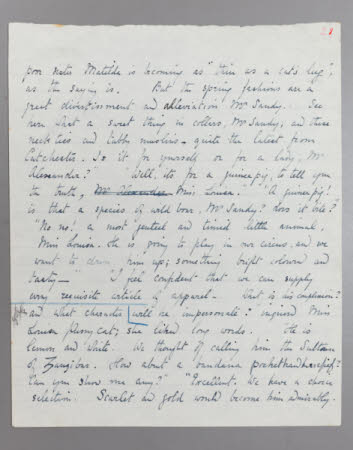 21
poor sister Matilda is becoming as "thin as a cat's lug",
as the saying is. But the spring fashions are a
great divertissment and alleviation Mr Sandy. See
here what a sweet thing in collars, Mr Sandy; and these
neck ties and tabby muslins - quite the latest from
Catchester. Is it for yourself or for a lady, Mr
Alexander?" "Well, it's for a guinea pig, to tell you
the truth, Mr Alexander Miss Louisa." "A guinea pig!
is that a species of wild boar, Mr Sandy? does it bite?"
"No, no, a most genteel and timid little animal,
Miss Louisa. He is going to play in our circus, and we
want to dress him up; something bright colored and
tasty —" "I feel confident that we can supply
every requisite article of apparel. What is his complexion?
and what character will he impersonate? inquired Miss
Louisa Pussycat; she liked long words. He is
lemon and white. We thought of calling him the Sultan
of Zanzibar. How about a bandana pockethandkerchief?
Can you show me any?" "Excellent. We have a choice
selection. Scarlet and gold would become him admirably.